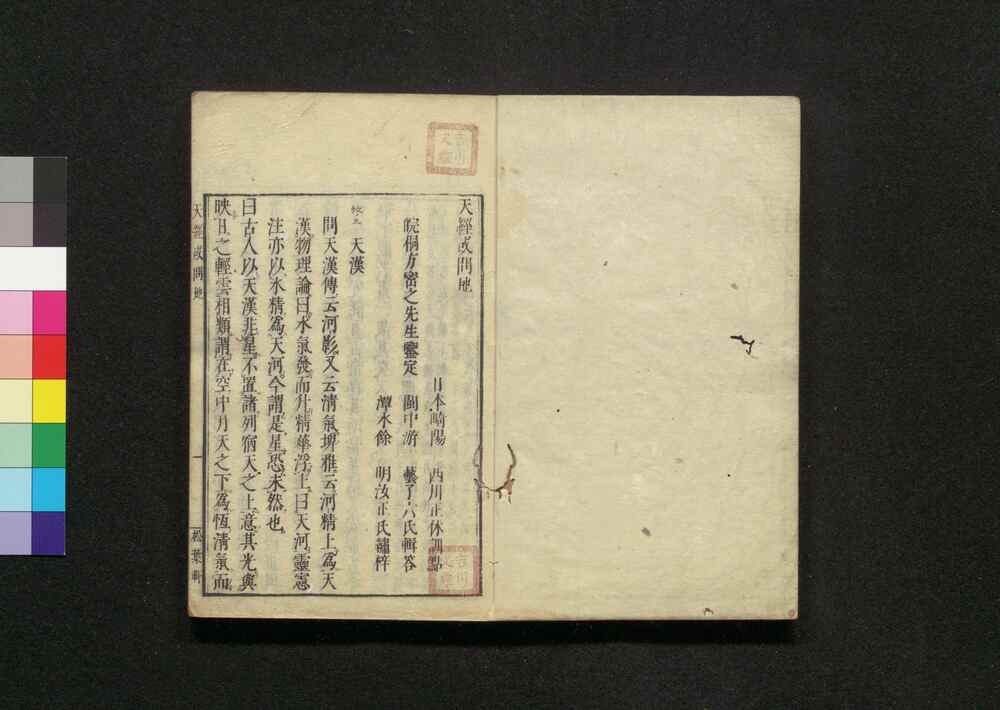 天經或問地
日本﨑陽 西川正休訓點
皖桐方密之先生鑒定 閩中游 藝子六氏輯答
潭水餘 明汝正氏鏽梓
天漢
問天漢傳云河影又云清氣埤雅云河精上爲天
漢物理論曰水氣發而升精華浮上曰天河靈憲
注亦以水精爲天河今謂是星恐未然也
曰古人以天漢非星不置諸列宿天之上意其光與
映日之輕雲相類謂在空中月天之下爲恆清氣而
天經或問地
一
松葉軒